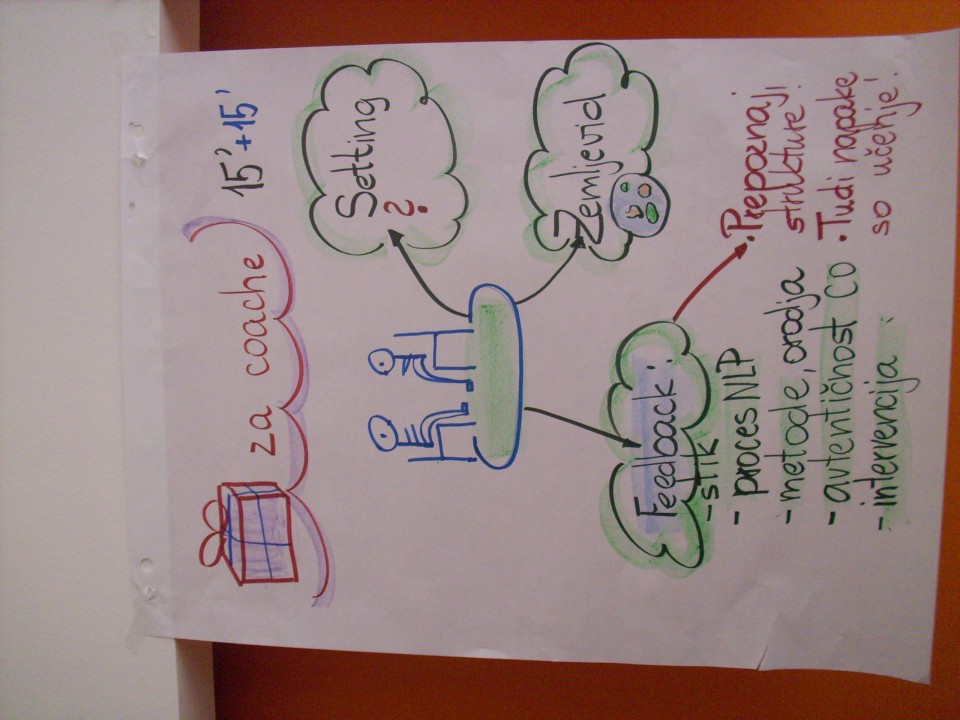 za coache
15' + 15'
Setting
?
Zemljevid
Feedback:
- stik
- proces NLP
- metode, orodja
- avtentičnost CO
- intervencija
• Prepoznaj
strukture!
• Tudi napake
so učenje!